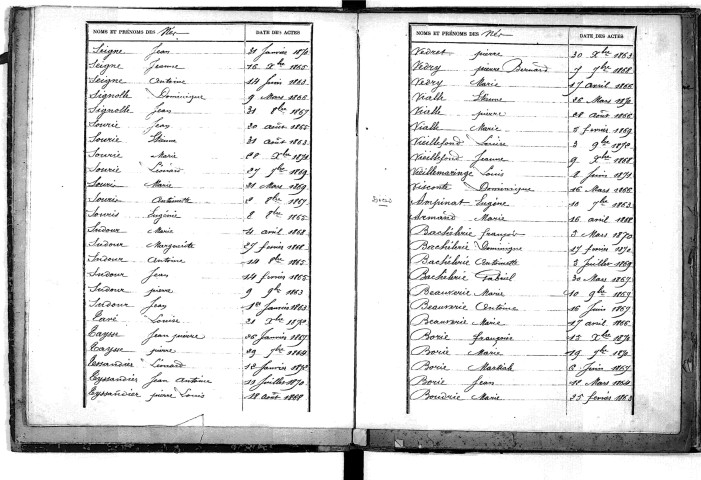 NOMS ET PRÉNOMS DES Nés DATE DES ACTES
Seigne Jean 31 Janvier 1872
Seigne Jeanne 16 Xbre 1865
Seigne Antoine 14 Juin 1863
Signolle Dominique 9 Mars 1866
Signolle Jean 31 8bre 1867
Sourie Jean 30 août 1866
Sourie Etienne 31 août 1863
Sourie Marie 28 Xbre 1872
Sourie Léonard 27 7bre 1869
Sourie Marie 31 Mars 1869
Sourie Antoinette 2 8bre 1867
Souris Eugénie 2 8bre 1865
Sudour Marie 4 avril 1868
Sudour Marguerite 27 fevrier 1868
Sudour Antoine 14 8bre 1865
Sudour Jean 14 fevrier 1865
Sudour pierre 9 9bre 1863
Sudour Jean 1er Janvier 1863
Tavé Louise 21 Xbre 1870
Taysse Jean pierre 26 Janvier 1867
Taysse pierre 29 7bre 1864
Tessandier Léonard 12 Janvier 1872
Teyssandier Jean Antoine 19 Juillet 1870
Teyssandier pierre Louis 18 août 1868
NOMS ET PRÉNOMS DES Nés DATE DES ACTES
Vedret pierre 30 Xbre 1863
Vedry pierre Bernard 7bre 1868
Vedry Marie 17 avril 1866
Vialle Etienne 26 Mars 1872
Vialle pierre 28 août 1866
Vialle Marie 8 fevrier 1869
Vieillefond Louise 3 9bre 1872
Vieillefond Jeanne 9 Xbre 1868
Vieillemaringe Louis 2 Juin 1871
Visconte Dominique 16 Mars 1866
Ampinat Eugène 10 7bre 1863
Armand Marie 16 avril 1868
Bachelerie françois 3 Mars 1870
Bachelerie Dominique 17 fevrier 1872
Bachelerie Antoinette 3 Juillet 1869
Bachelerie Gabriel 30 Mars 1867
Beauverie Marie 10 9bre 1869
Beauverie Antoine 16 Juin 1867
Beauverie Marie 17 avril 1866
Borie françoise 13 Xbre 1872
Borie Marie 19 7bre 1872
Borie Martiale 6 Juin 1867
Borie Jean 18 Mars 1864
Boudrie Marie 25 fevrier 1863